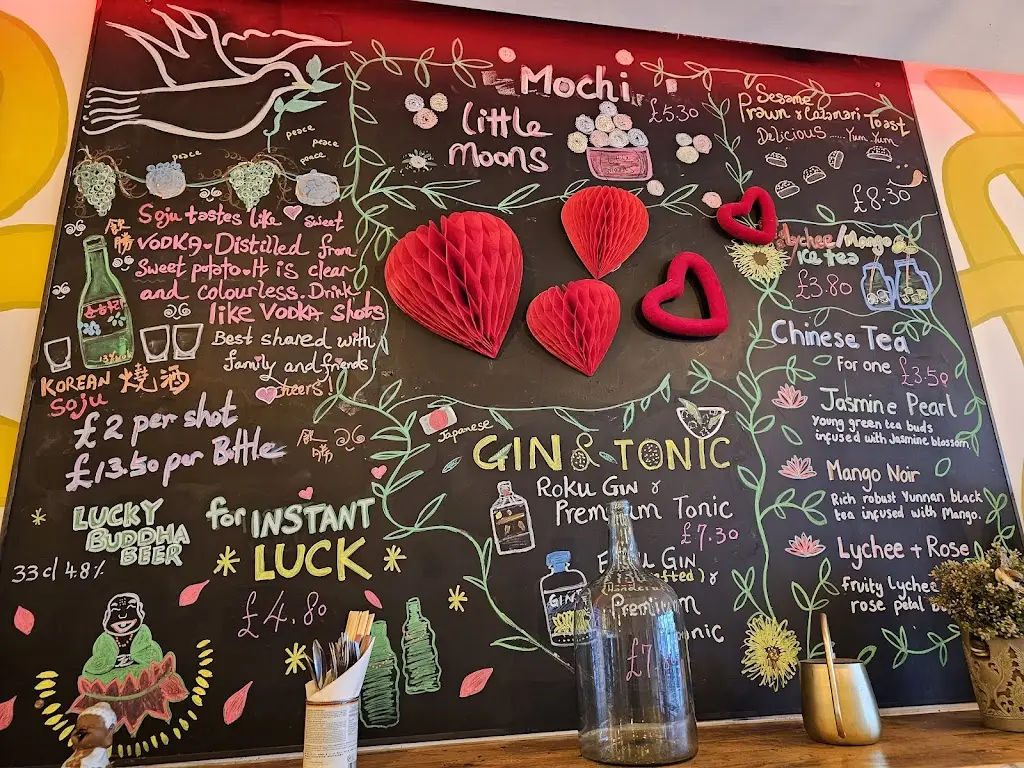 peace
peace
peace
peace
Soju tastes like sweet
VODKA. Distilled from
Sweet potato. It is clear
and colourless. Drink
like VODKA shots
Best shared with
family and friends
Cheers!
KOREAN 燒酒
Soju
£2 per shot
£13.50 per Bottle
LUCKY
BUDDHA
BEER
for INSTANT
LUCK
33cl 4.8%
£4.80
Mochi
Little
Moons
£5.30
Japanese
GIN & TONIC
Roku Gin &
Premium Tonic
£7.30
Gin
&
Premium
GIN
Sesame
Prawn & Calamari Toast
Delicious ..... Yum Yum
£8.30
Lychee/Mango
Ice tea
£3.80
Chinese Tea
For one £3.50
Jasmine Pearl
young green tea buds
infused with Jasmine blossom
Mango Noir
Rich robust Yunnan black
tea infused with Mango.
Lychee + Rose
fruity Lychee
rose petal